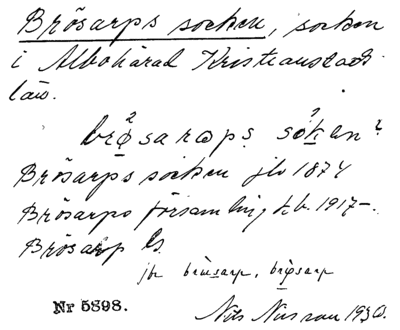 Brösarps socken, socken
i Albohärad Kristianstads
län.
brø̱²sarωps. sok̠en²
Brösarps socken jb 1874
Brösarps församling kb. 1917-.
Brösarp Gs.
jr brùsarp, brø̱sarp
Nr 5898.
Nils 1930.